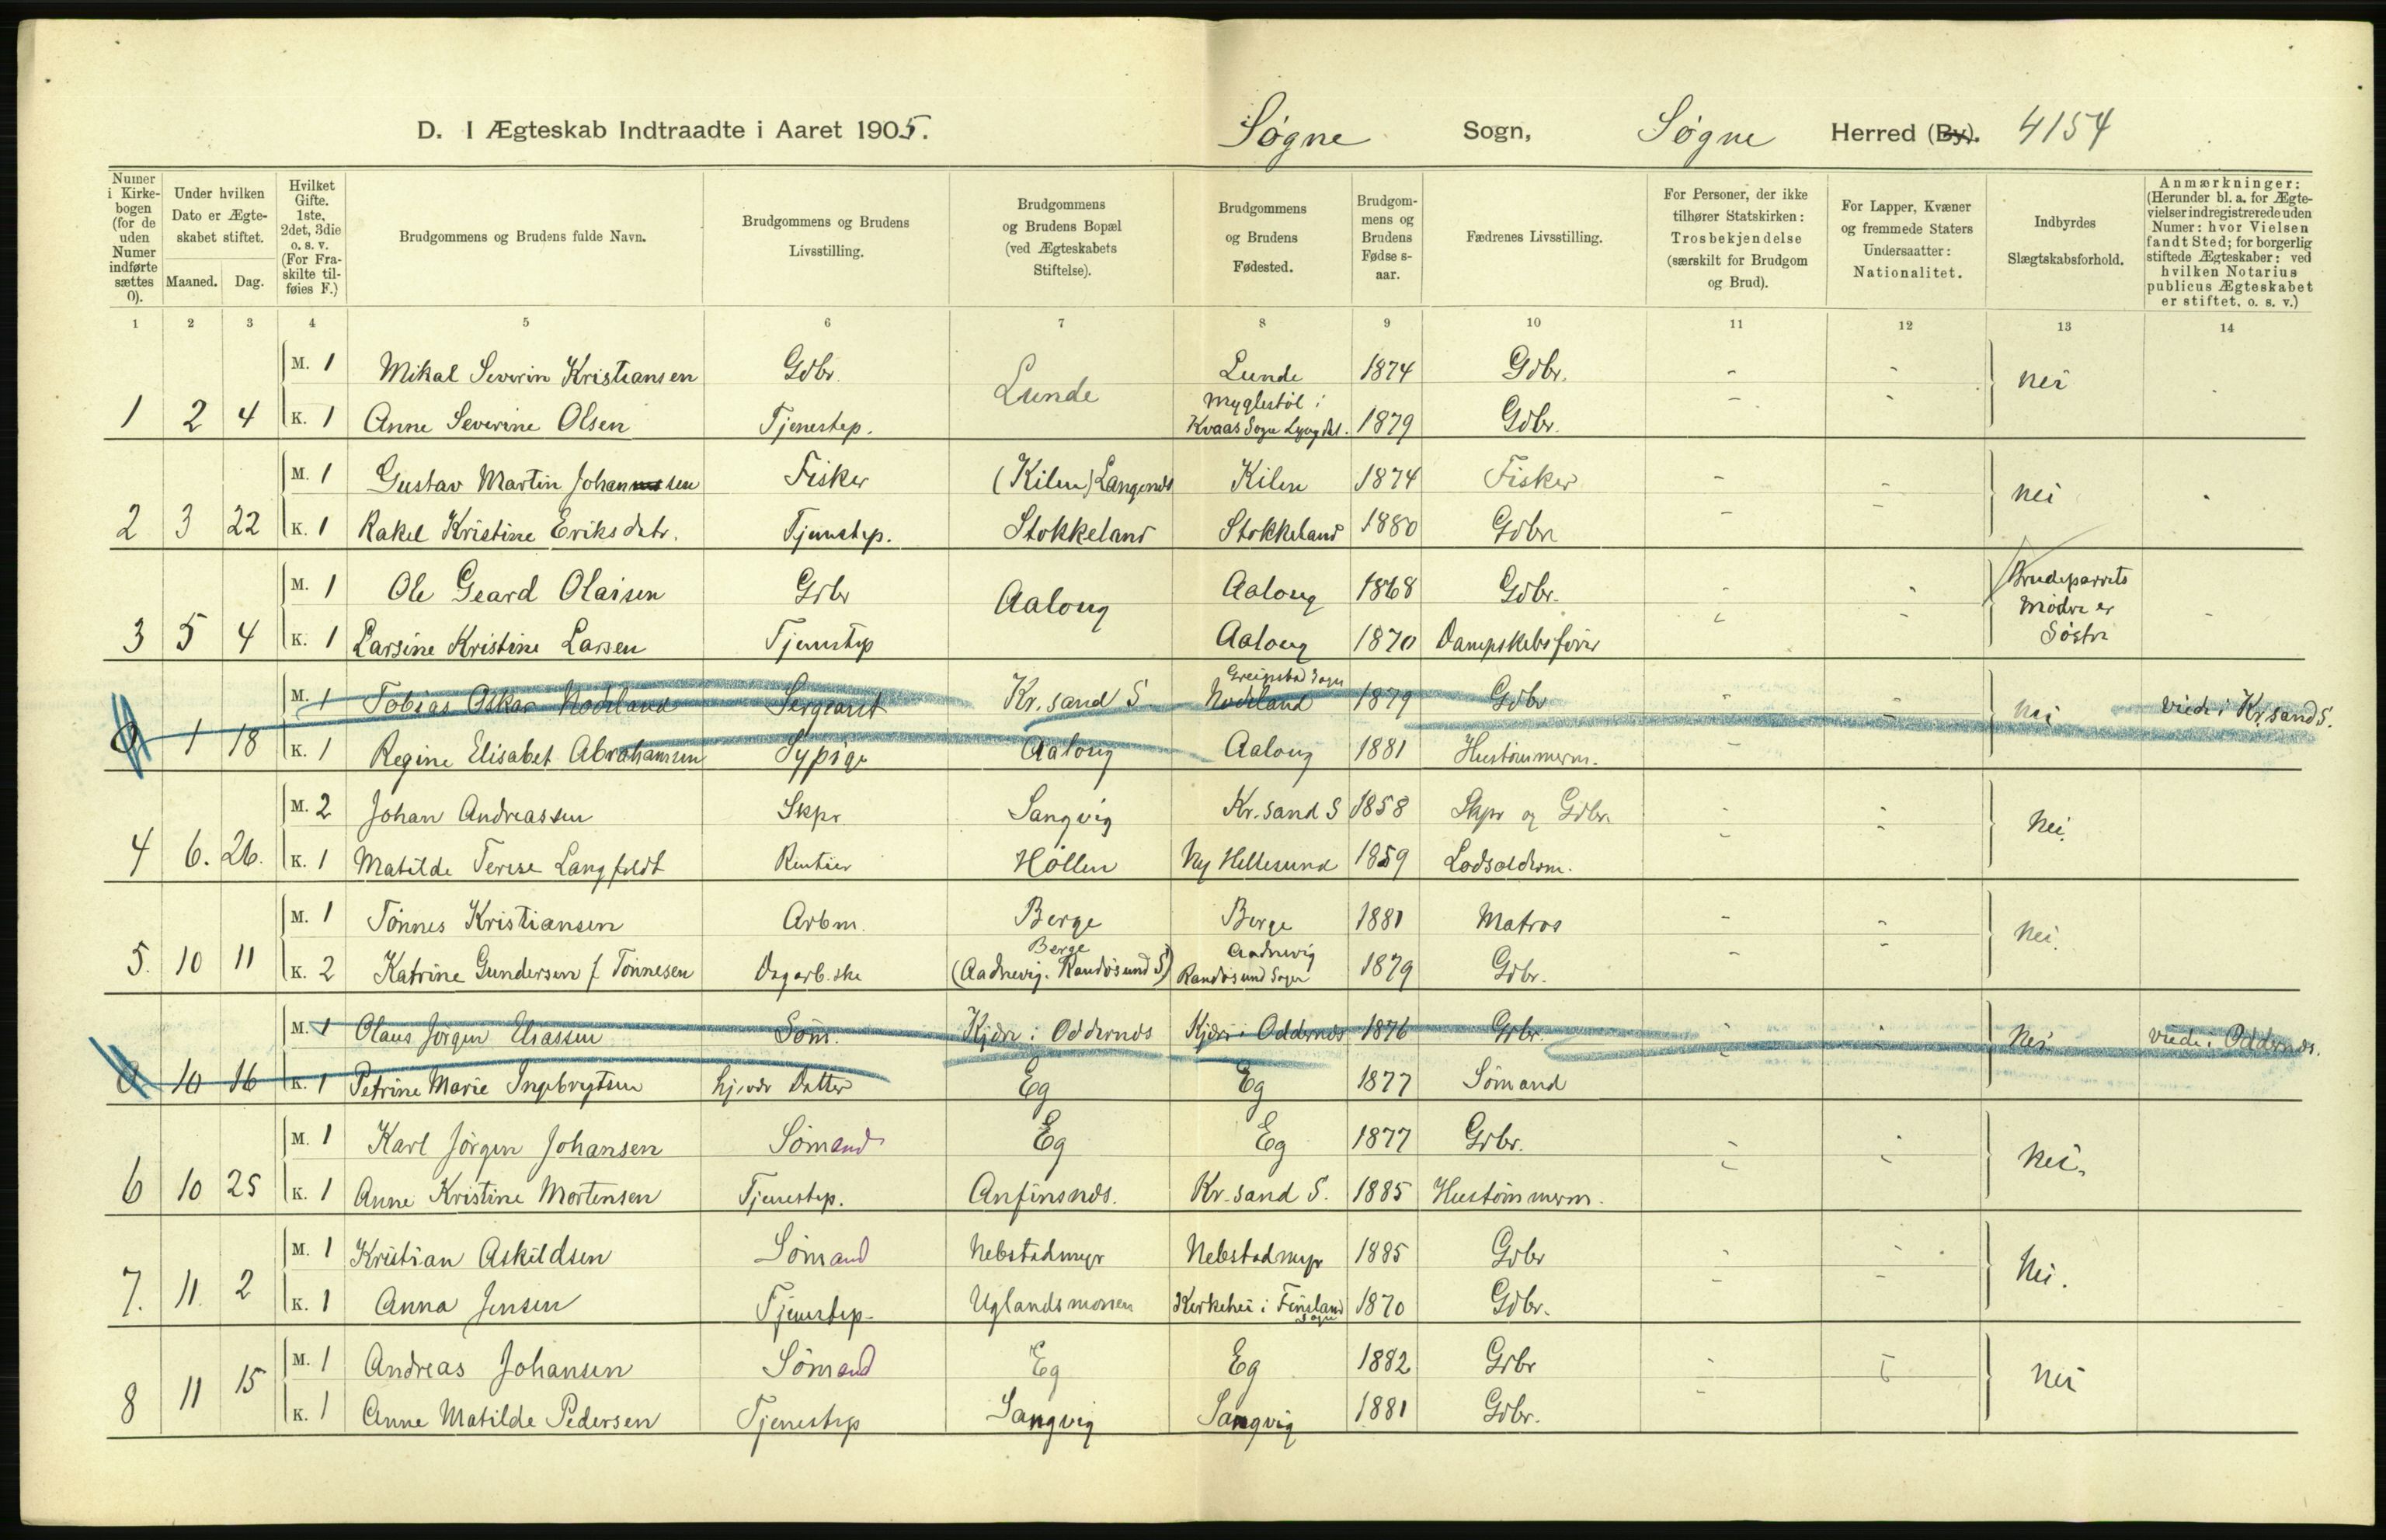 D. I Ægteskab Indtraadte i Aaret 1905. Søgne Sogn, Søgne Herred (By). 4154
Numer i Kirkebogen (for de uden Numer indførte sættes 0). Under hvilken Dato er Ægteskabet stiftet. Maaned. Dag. Hvilket Gifte. 1ste, 2det, 3die o. s. v. (For Fraskilte tilføies F.) Brudgommens og Brudens fulde Navn. Brudgommens og Brudens Livsstilling. Brudgommens og Brudens Bopæl (ved Ægteskabets Stiftelse). Brudgommens og Brudens Fødested. Brudgommens og Brudens Fødselsaar. Fædrenes Livsstilling. For Personer, der ikke tilhører Statskirken: Trosbekjendelse (særskilt for Brudgom og Brud). For Lapper, Kvæner og fremmede Staters Undersaatter: Nationalitet. Indbyrdes Slægtskabsforhold. Anmærkninger: (Herunder bl. a. for Ægtevielser indregistrerede uden Numer: hvor Vielsen fandt Sted; for borgerlig stiftede Ægteskaber: ved hvilken Notarius publicus Ægteskabet er stiftet, o. s. v.)
1 2 3 4 5 6 7 8 9 10 11 12 13 14
M. 1 Mikal Severin Kristiansen Gdbr. Lunde Lunde 1874 Gdbr. - - nei
1 2 4 K. 1 Anne Severine Olsen Tjenestep. Myglestøl i Kvaas Sogn Lyngdal. 1879 Gdbr. - -
M. 1 Gustav Martin Johannsen Fisker (Kilen) Langenes Kilen 1874 Fisker - - nei
2 3 22 K. 1 Rakel Kristine Eriksdatr. Tjenestep. Stokkeland Stokkeland 1880 Gdbr - -
M. 1 Ole Geard Olaisen Gdbr Aaloug Aaloug 1868 Gdbr. - - Brudeparrets Mødre er Søstre
3 5 4 K. 1 Larsine Kristine Larsen Tjenestep Aaloug 1870 Dampskebsfører - -
M. 1 Tobias Oskar Nodeland Sergeant Kr. sand S Greipstad Sogn Nodeland 1879 Gdbr - - nei viede i Kr. sand S.
0 1 18 K. 1 Regine Elisabet Abrahamsen Sypige Aaloug Aaloug 1881 Hustømmerm. -
M. 2 Johan Andreassen Skpr Langvig Kr. sand S 1858 Skpr og Gdbr. - - Nei.
4 6. 26. K. 1 Matilde Terese Langfeldt Rentier Høllen Ny Hellesund 1859 Lodsolderm. - -
M. 1 Tønnes Kristiansen Arbm. Berge Berge 1881 Matros - - Nei.
5. 10 11 K. 2 Katrine Gundersen f. Tønnesen Dagarb.ske Berge (Aadnevig. Randøsund S) Aadnevig Randøsund Sogn 1879 Gdbr. - -
M. 1 Olaus Jørgen Eliassen Søm. Kjære i Oddernes Kjære i Oddernes 1876 Gdbr. - - Nei viede i Oddernes.
0 10 16 K. 1 Petrine Marie Ingebrygtsen hj.vær Datter Eg Eg 1877 Sømand
M. 1 Karl Jørgen Johansen Sømand Eg Eg 1877 Gdbr. - - Nei.
6 10 25 K. 1 Anne Kristine Mortensen Tjenestep. Anfinsnes. Kr. sand S. 1885 Hustømmerm. - -
M. 1 Kristian Askildsen Sømand Nebstadmyr Nebstadmyr 1885 Gdbr - - Nei.
7. 11. 2 K. 1 Anna Jensen Tjenestep. Uglandsmonen Kirkehei i Finsland Sogn 1870 Gdbr. - -
M. 1 Andreas Johansen Sømand Eg Eg 1882 Gdbr - - Nei
8 11 15 K. 1 Anne Matilde Pedersen Tjenestep Langvig Langvig 1881 Gdbr. -